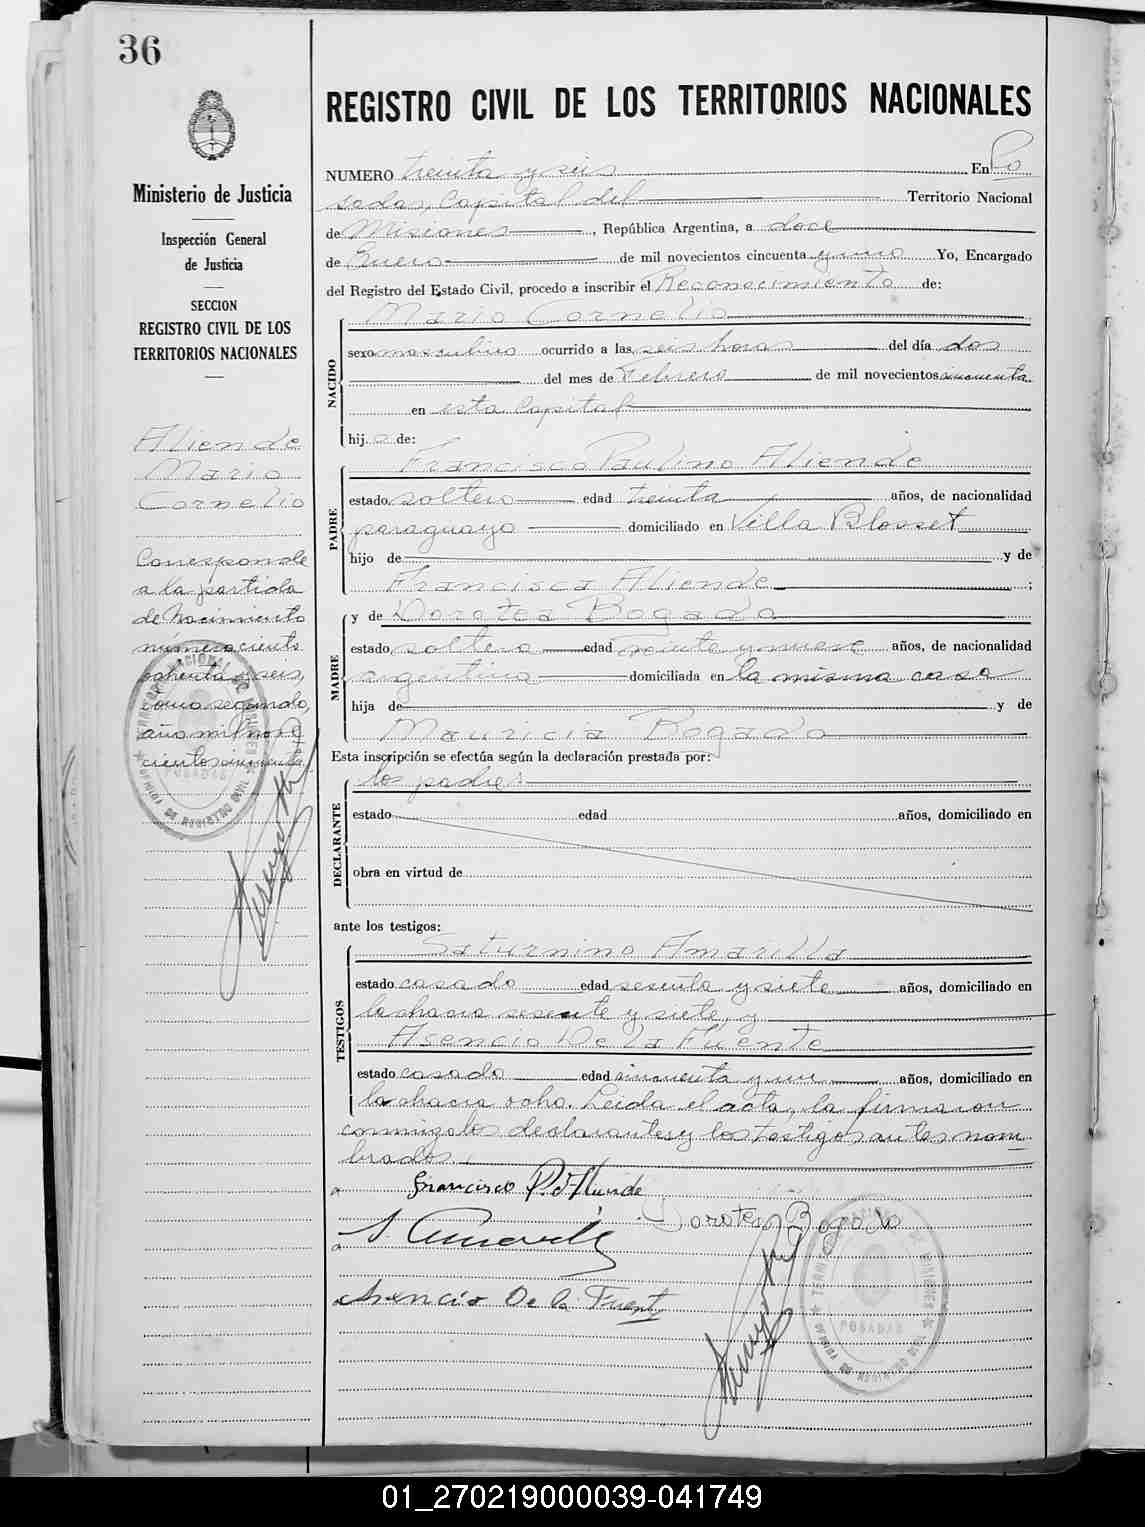 36
Ministerio de Justicia
Inspección General
de Justicia
SECCION
REGISTRO CIVIL DE LOS
TERRITORIOS NACIONALES
Aliende
Mario
Cornelio
Corresponde
a la partida
de Nacimiento
número ciento
ochenta y seis,
tomo segundo,
año mil nove
cientos cincuenta.
REGISTRO CIVIL DE LOS TERRITORIOS NACIONALES
NUMERO treinta y seis En Po
sadas, Capital del Territorio Nacional
de Misiones, República Argentina, a doce
de Enero de mil novecientos cincuenta y uno Yo, Encargado
del Registro del Estado Civil, procedo a inscribir el Reconocimiento de:
NACIDO
Mario Cornelio
sexo masculino ocurrido a las seis horas del día dos
del mes de Febrero de mil novecientos cincuenta
en esta Capital
hijo de:
PADRE
Francisco Paulino Aliende
estado soltero edad treinta años, de nacionalidad
paraguayo domiciliado en Villa Blosset
hijo de y de
Francisca Aliende ;
MADRE
y de Dorotea Bogado
estado soltera edad veinte y nueve años, de nacionalidad
argentina domiciliada en la misma casa
hija de y de
Mauricia Bogado
Esta inscripción se efectúa según la declaración prestada por:
DECLARANTE
los padres
estado edad años, domiciliado en
obra en virtud de
ante los testigos:
TESTIGOS
Saturnino Amarilla
estado casado edad sesenta y siete años, domiciliado en
la chacra sesenta y siete, y
Asencio De la Fuente
estado casado edad cincuenta y un años, domiciliado en
la chacra ocho. Leida el acta, la firmaron
conmigo los declarantes y los testigos antes nom
brados.
Francisco P. Aliende
Dorotea Bogado
S. Amarilla
Asencio De la Fuente
POSADAS
OFICINA DE REGISTRO CIVIL
POSADAS
OFICINA DE REGISTRO CIVIL
01_270219000039-041749